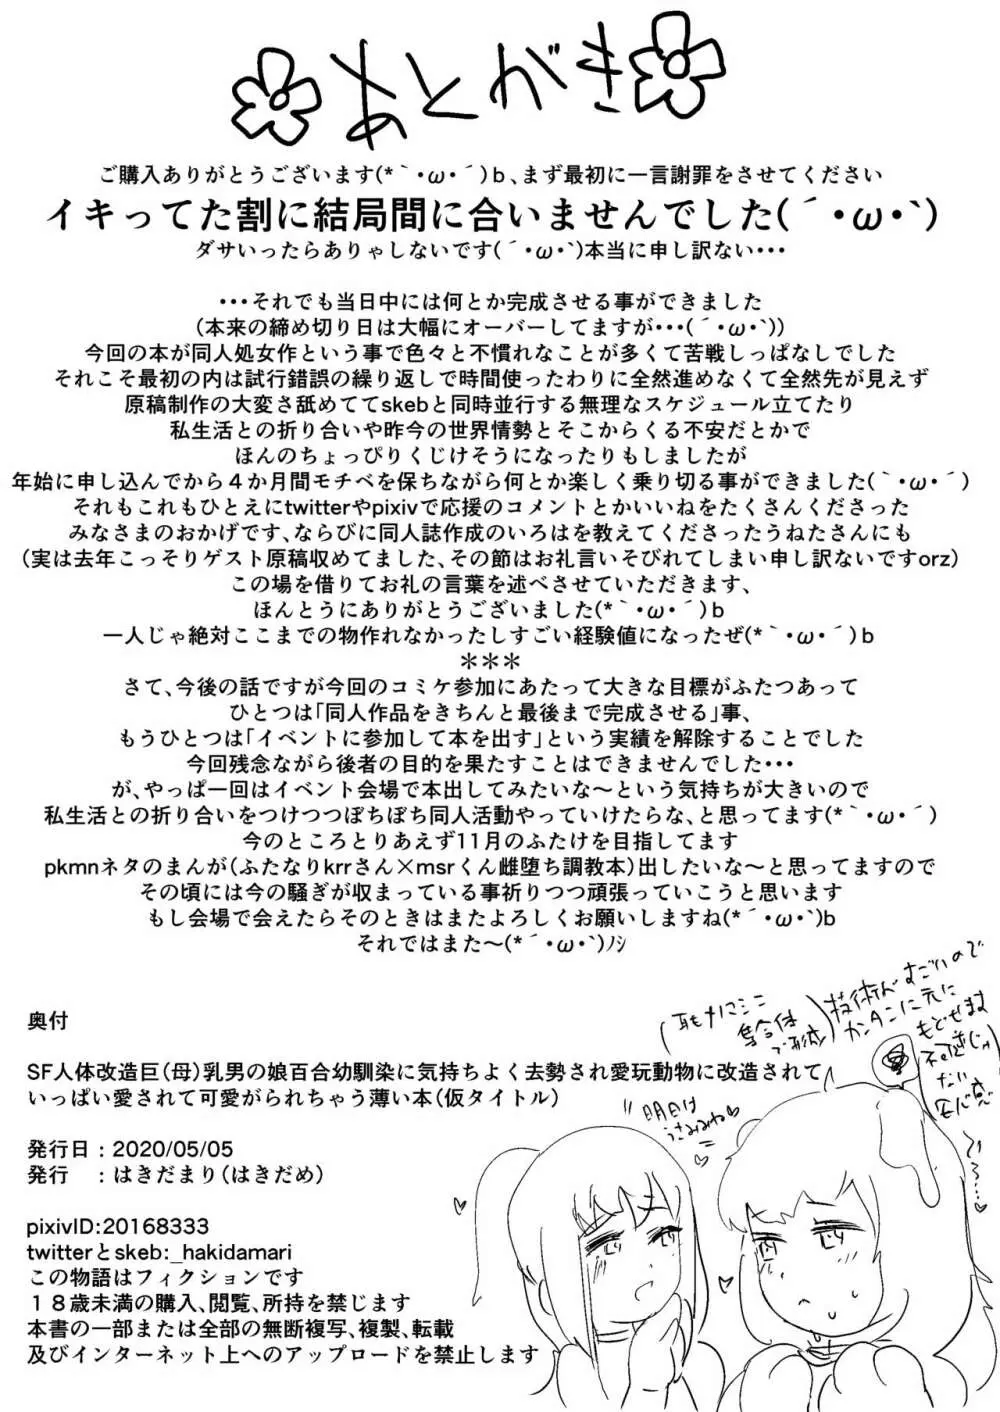 あとがき
ご購入ありがとうございます(*｀・ω・´)b、まず最初に一言謝罪をさせてください
イキってた割に結局間に合いませんでした(´・ω・`)
ダサいったらありゃしないです(´・ω・`)本当に申し訳ない・・・
・・・それでも当日中には何とか完成させる事ができました
(本来の締め切り日は大幅にオーバーしてますが・・・(´・ω・`))
今回の本が同人処女作という事で色々と不慣れなことが多くて苦戦しっぱなしでした
それこそ最初の内は試行錯誤の繰り返しで時間使ったわりに全然進めなくて全然先が見えず
原稿制作の大変さ舐めててskebと同時並行する無理なスケジュール立てたり
私生活との折り合いや昨今の世界情勢とそこからくる不安だとかで
ほんのちょっぴりくじけそうになったりもしましたが
年始に申し込んでから４か月間モチベを保ちながら何とか楽しく乗り切る事ができました(｀・ω・´)
それもこれもひとえにtwitterやpixivで応援のコメントとかいいねをたくさんくださった
みなさまのおかげです、ならびに同人誌作成のいろはを教えてくださったうねたさんにも
(実は去年こっそりゲスト原稿収めてました、その節はお礼言いそびれてしまい申し訳ないですorz)
この場を借りてお礼の言葉を述べさせていただきます、
ほんとうにありがとうございました(*｀・ω・´)b
一人じゃ絶対ここまでの物作れなかったしすごい経験値になったぜ(*｀・ω・´)b
＊＊＊
さて、今後の話ですが今回のコミケ参加にあたって大きな目標がふたつあって
ひとつは「同人作品をきちんと最後まで完成させる」事、
もうひとつは「イベントに参加して本を出す」という実績を解除することでした
今回残念ながら後者の目的を果たすことはできませんでした・・・
が、やっぱ一回はイベント会場で本出してみたいな～という気持ちが大きいので
私生活との折り合いをつけつつぼちぼち同人活動やっていけたらな、と思ってます(*｀・ω・´)
今のところとりあえず11月のふたけを目指してます
pkmnネタのまんが(ふたなりkrrさん×msrくん雌堕ち調教本)出したいな～と思ってますので
その頃には今の騒ぎが収まっている事祈りつつ頑張っていこうと思います
もし会場で会えたらそのときはまたよろしくお願いしますね(*´・ω・`)b
それではまた～(*´・ω・`)ﾉｼ
技術がすごいので
カンタンに元に
もどせます
明日は
奥付
SF人体改造巨(母)乳男の娘百合幼馴染に気持ちよく去勢され愛玩動物に改造されて
いっぱい愛されて可愛がられちゃう薄い本(仮タイトル)
発行日：2020/05/05
発行　：はきだまり(はきだめ)
pixivID:20168333
twitterとskeb:_hakidamari
この物語はフィクションです
１８歳未満の購入、閲覧、所持を禁じます
本書の一部または全部の無断複写、複製、転載
及びインターネット上へのアップロードを禁止します